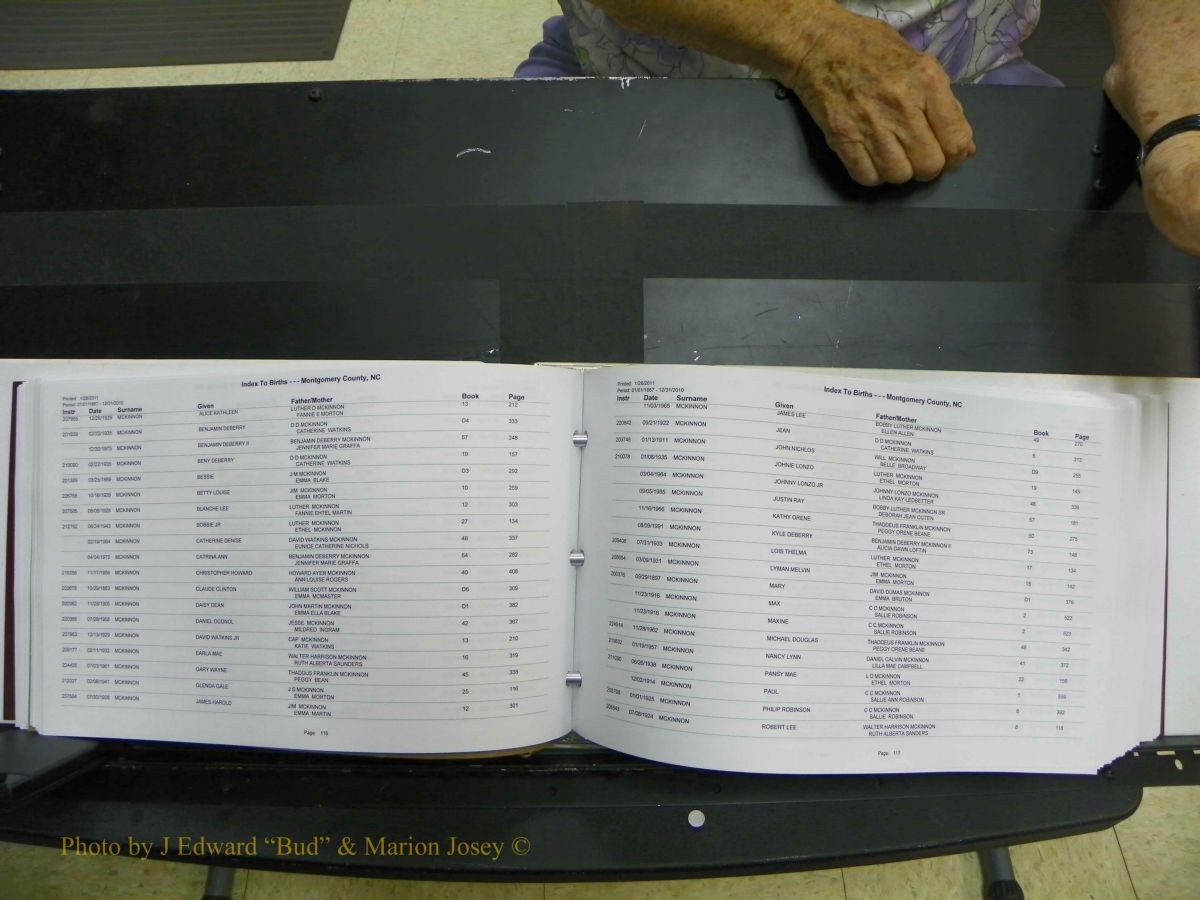 Index To Births - - - Montgomery County, NC
Printed: 1/28/2011
Period: 01/01/1867 - 12/31/2010
Instr Date Surname Given Father/Mother Book Page
MCKINNON ALICE KATHLEEN LUTHER D MCKINNON 13 212
FANNIE E MORTON
MCKINNON BENJAMIN DEBERRY D D MCKINNON D4 333
CATHERINE WATKINS
12/30/1973 MCKINNON BENJAMIN DEBERRY II BENJAMIN DEBERRY MCKINNON 57 248
JENNIFER MARIE GRAFFA
MCKINNON BENY DEBERRY D D MCKINNON 19 157
CATHERINE WATKINS
MCKINNON BESSIE J M MCKINNON D3 292
EMMA BLAKE
MCKINNON BETTY LOUISE JIM MCKINNON 10 259
EMMA MORTON
MCKINNON BLANCHE LEE LUTHER MCKINNON 12 303
FANNIE EHTEL MARTIN
212792 06/24/1943 MCKINNON BOBBIE JR LUTHER MCKINNON 27 134
ETHEL MCKINNON
02/19/1964 MCKINNON CATHERINE DENISE DAVID WATKINS MCKINNON 48 337
EUNICE CATHERINE NICHOLS
04/04/1972 MCKINNON CATRINA ANN BENJAMIN DEBERRY MCKINNON 54 282
JENNIFER MARIE GRAFFA
11/17/1956 MCKINNON CHRISTOPHER HOWARD HOWARD AYER MCKINNON 40 408
ANN LOUISE ROGERS
MCKINNON CLAUDE CLINTON WILLIAM SCOTT MCKINNON D6 309
EMMA MCMASTER
MCKINNON DAISY DEAN JOHN MARTIN MCKINNON D1 382
EMMA ELLA BLAKE
MCKINNON DANIEL OCONOL JESSE MCKINNON 42 367
MILDRED INGRAM
12/13/1929 MCKINNON DAVID WATKINS JR CAP MCKINNON 13 210
KATIE WATKINS
02/11/1932 MCKINNON EARLA MAE WALTER HARRISON MCKINNON 16 319
RUTH ALBERTA SAUNDERS
07/03/1961 MCKINNON GARY WAYNE THADDUS FRANKLIN MCKINNON 45 338
PEGGY BEAN
212027 02/08/1941 MCKINNON GLENDA GALE J S MCKINNON 25 116
EMMA MORTON
207584 07/30/1928 MCKINNON JAMES HAROLD JIM MCKINNON 12 301
EMMA MARTIN
Page 116
Printed: 1/28/2011
Period: 01/01/1867 - 12/31/2010
Index To Births - - - Montgomery County, NC
Instr Date Surname Given Father/Mother Book Page
11/03/1965 MCKINNON JAMES LEE BOBBY LUTHER MCKINNON 49 270
ELLEN ALLEN
220842 09/21/1922 MCKINNON JEAN D D MCKINNON 6 312
CATHERINE WATKINS
200748 01/13/1911 MCKINNON JOHN NICHLOS WILL MCKINNON D9 255
BELLE BROADWAY
210079 01/06/1935 MCKINNON JOHNIE LONZO LUTHER MCKINNON 19 145
ETHEL MORTON
03/04/1964 MCKINNON JOHNNY LONZO JR JOHNNY LONZO MCKINNON 48 339
LINDA KAY LEDBETTER
09/05/1985 MCKINNON JUSTIN RAY BOBBY LUTHER MCKINNON SR 67 181
DEBORAH JEAN OUTEN
11/16/1966 MCKINNON KATHY ORENE THADDEUS FRANKLIN MCKINNON 50 275
PEGGY ORENE BEANE
08/09/1991 MCKINNON KYLE DEBERRY BENJAMIN DEBERRY MCKINNON II 73 148
ALICIA DAWN LOFTIN
07/31/1933 MCKINNON LOIS THELMA LUTHER MCKINNON 17 134
ETHEL MORTON
03/09/1931 MCKINNON LYMAN MELVIN JIM MCKINNON 15 142
EMMA MORTON
200376 09/29/1897 MCKINNON MARY DAVID DUMAS MCKINNON D1 376
EMMA BRUTON
11/23/1916 MCKINNON MAX C C MCKINNON 2 522
SALLIE ROBINSON
11/23/1916 MCKINNON MAXINE C C MCKINNON 2 523
SALLIE ROBINSON
224914 11/28/1962 MCKINNON MICHAEL DOUGLAS THADDEUS FRANKLIN MCKINNON 46 342
PEGGY ORENE BEANE
01/19/1957 MCKINNON NANCY LYNN DANIEL CALVIN MCKINNON 41 372
LILLA MAE CAMPBELL
06/26/1938 MCKINNON PANSY MAE L D MCKINNON 22 156
ETHEL MORTON
12/02/1914 MCKINNON PAUL C C MCKINNON 1
SALLIE ANN ROBINSON
01/01/1925 MCKINNON PHILIP ROBINSON C C MCKINNON 8 392
SALLIE ROBINSON
07/06/1924 MCKINNON ROBERT LEE WALTER HARRISON MCKINNON 8 118
RUTH ALBERTA SANDERS
Page 117
Photo by J Edward “Bud” & Marion Josey ©